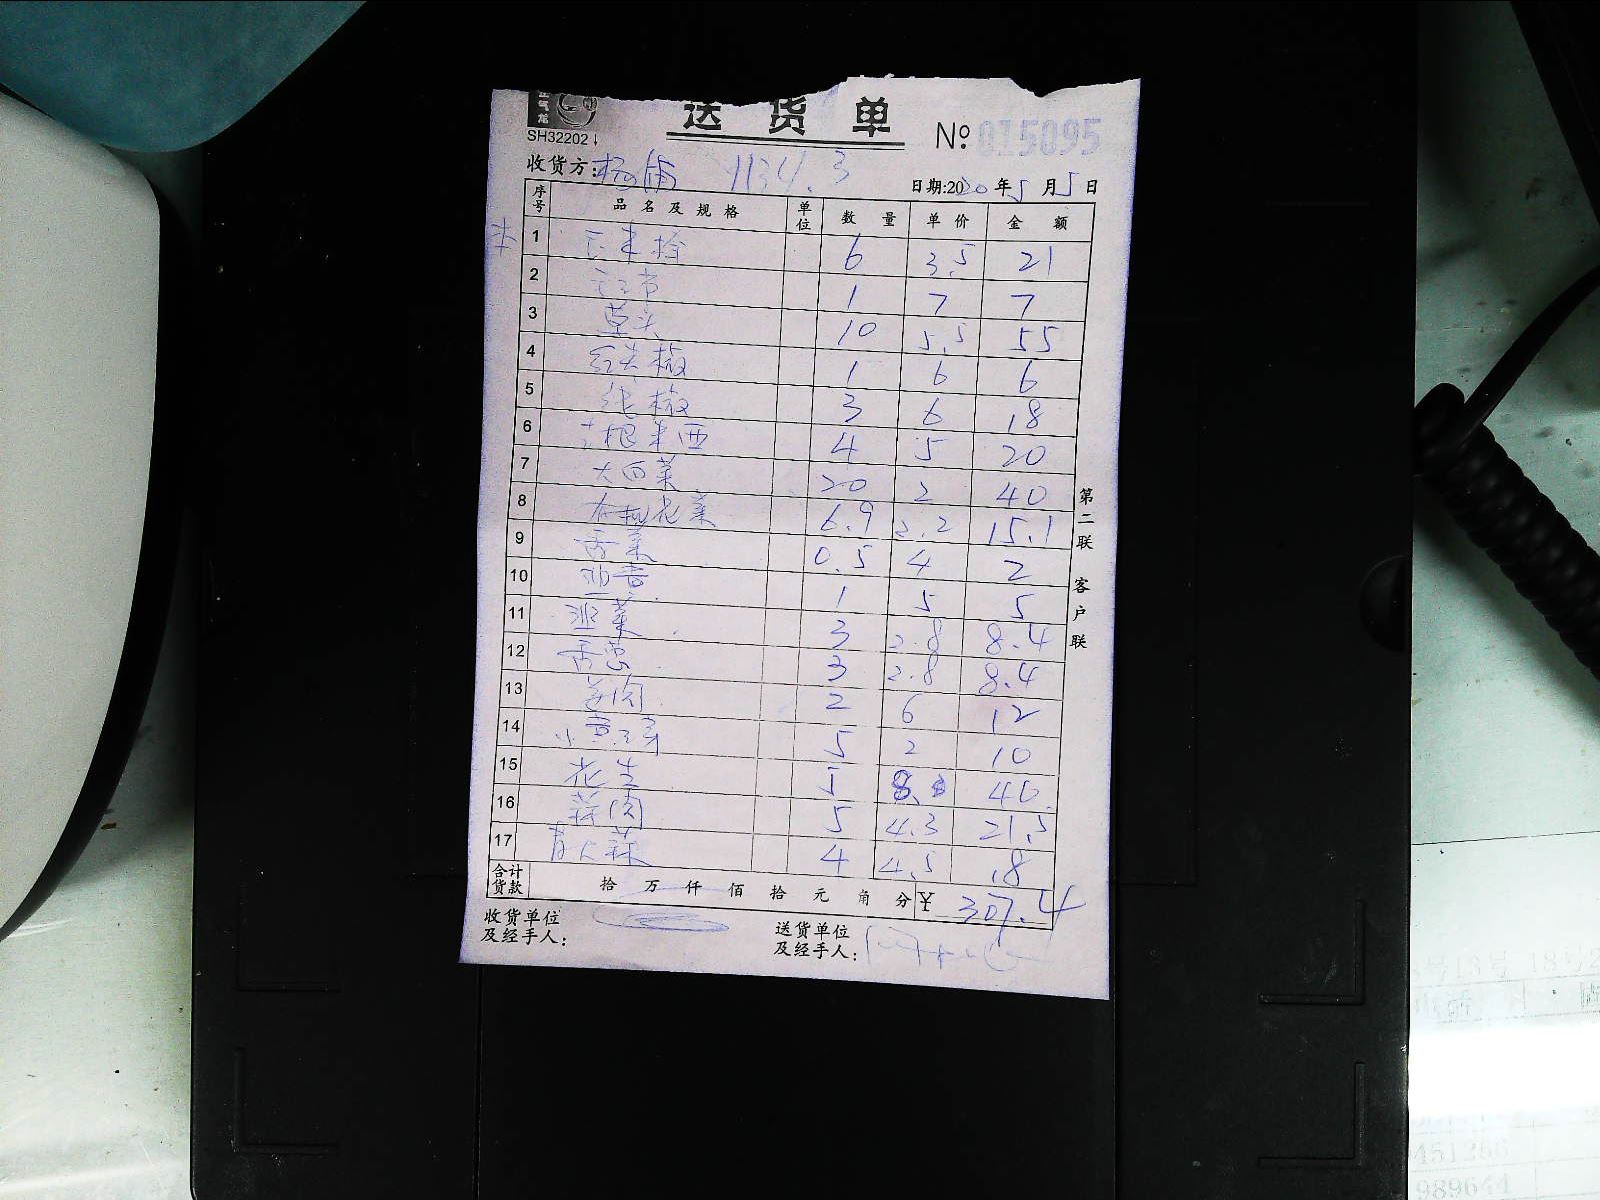 送货单
SH32202
№ 015095
收货方:杨浦 1134.3
日期:2020年5月5日
序号 品名及规格 单位 数量 单价 金额
1 玉米拴 6 3.5 21
2 1 7 7
3 草头 10 5.5 55
4 红尖椒 1 6 6
5 3 6 18
6 4 5 20
7 大白菜 20 2 40
8 有机花菜 6.9 2.2 15.1
9 香菜 0.5 4 2
10 1 5 5
11 韭菜 3 2.8 8.4
12 香葱 3 2.8 8.4
13 姜肉 2 6 12
14 5 2 10
15 花生 5 8 40
16 蒜肉 5 4.3 21.5
17 青大蒜 4 4.5 18
合计货款 拾 万 仟 佰 拾 元 角 分 ¥ 307.4
收货单位及经手人:
送货单位及经手人:
第二联 客户联